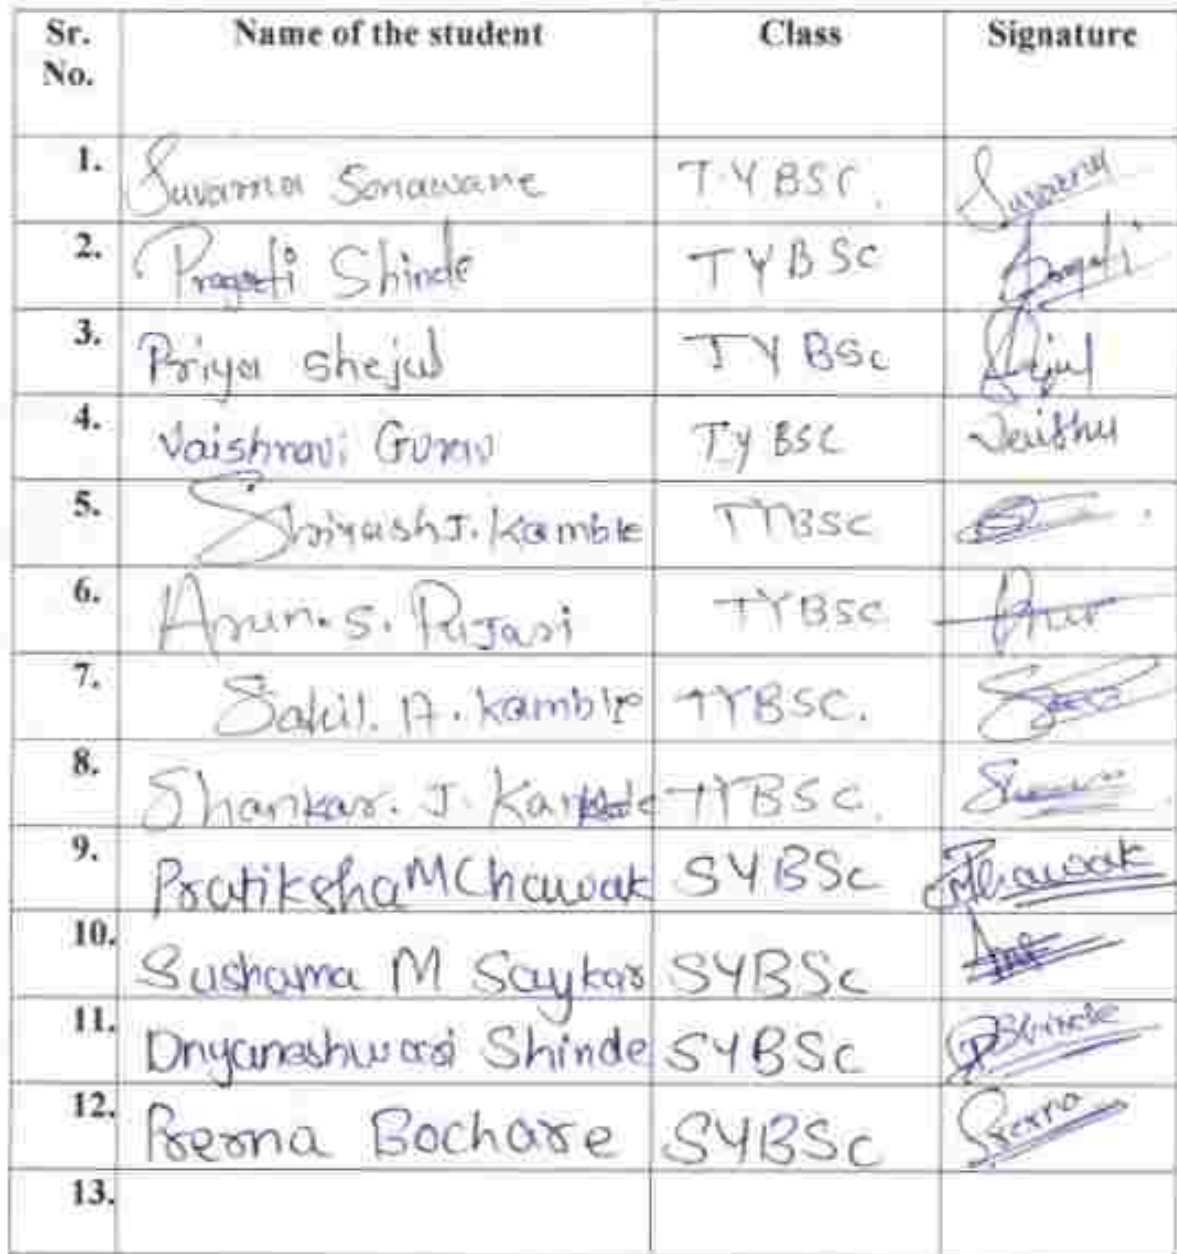 Sr. No. Name of the student Class Signature
1. Suvarna Sonawane T.Y BSC. Suvarna
2. Pragati Shinde TYBSc Pragati
3. Priya Shejul TY BSc Shejul
4. Vaishnavi Gurav Ty BSC Vaishu
5. J. Kamble TYBSC
6. Arun. S. Pujari TYBSC
7. A. Kamble TYBSC.
8. Shankar. J. TYBSC.
9. Pratiksha M Chawak SYBSc Chawak
10. Sushama M Saykar SYBSc
11. Dnyaneshwari Shinde SYBSc Shinde
12. Prerna Bochare SYBSc Prerna
13.